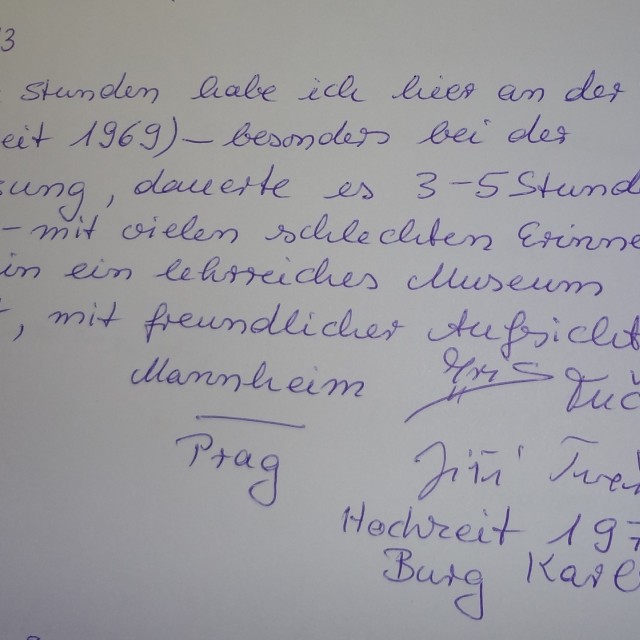 3
stunden habe ich hier an der
eit 1969) – besonders bei der
sung, dauerte es 3-5 Stund
- mit vielen schlechten Erinne
in ein lehrreiches Museum
, mit freundlicher Aufsicht
Mannheim
Prag Jiří
Hochzeit 197
Burg Karl